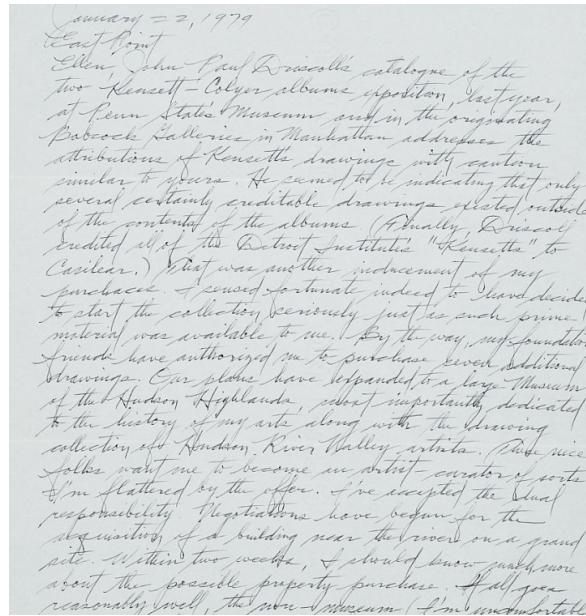 January 22, 1979
East Point
Ellen, John Paul Driscoll's catalogue of the
two Kensett-Colyer albums exposition, last year,
at Penn State's Museum and in the originating
Babcock Galleries in Manhattan addresses the
attributions of Kensett's drawings with caution
similar to yours. He seemed to be indicating that only
several certainly creditable drawings existed outside
of the contents of the albums. (Finally, Driscoll
credited all of the Detroit Institute's "Kensetts" to
Casilear.) That was another inducement of my
purchases. I sensed fortunate indeed to have decide
to start the collection seriously just as such prime
material was available to me. By the way, my foundation
friends have authorized me to purchase seven additional
drawings. Our plans have expanded to a large Museum
of the Hudson Highlands, most importantly dedicated
to the history of my arts along with the drawing
collection of Hudson River Valley artists. These nice
folks want me to become an artist-curator of sorts
I'm flattered by the offer. I've accepted the dual
responsibility. Negotiations have begun for the
acquisition of a building near the river on a grand
site. Within two weeks, I should know much more
about the possible property purchase. If all goes
reasonably well, the non-museum (I'm